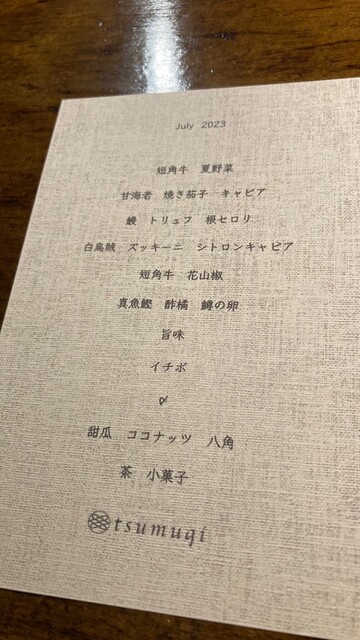 July 2023
短角牛　夏野菜
甘海老　焼き茄子　キャビア
鰻　トリュフ　根セロリ
白烏賊　ズッキーニ　シトロンキャビア
短角牛　花山椒
真魚鰹　酢橘　鱒の卵
旨味
イチボ
〆
甜瓜　ココナッツ　八角
茶　小菓子
tsumugi